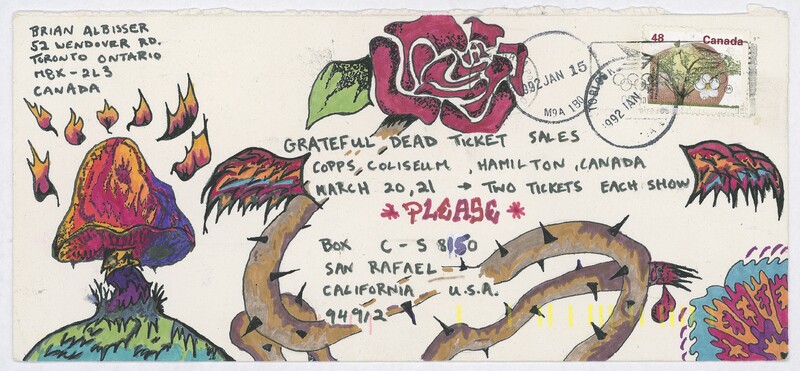 BRIAN ALBISSER
52 WENDOVER RD.
TORONTO ONTARIO
M8X-2L3
CANADA
48 Canada
1992 JAN 15
M9A 1B0
1992 JAN
GRATEFUL DEAD TICKET SALES
COPPS COLISEUM, HAMILTON, CANADA
MARCH 20,21 → TWO TICKETS EACH SHOW
*PLEASE*
BOX C-S 8150
SAN RAFAEL
CALIFORNIA U.S.A.
94912